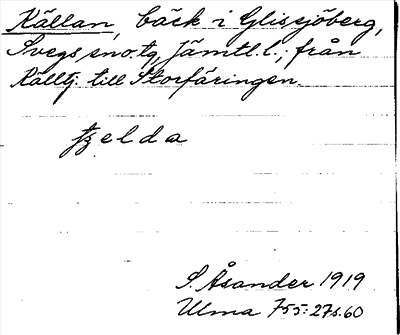 Källan, bäck i Glissjöberg,
Svegs sno. tg, Jämtl. l.; från
Källtj. till Storfäringen.
tzelda
S. Åsander 1919
Ulma 755: 27 s. 60